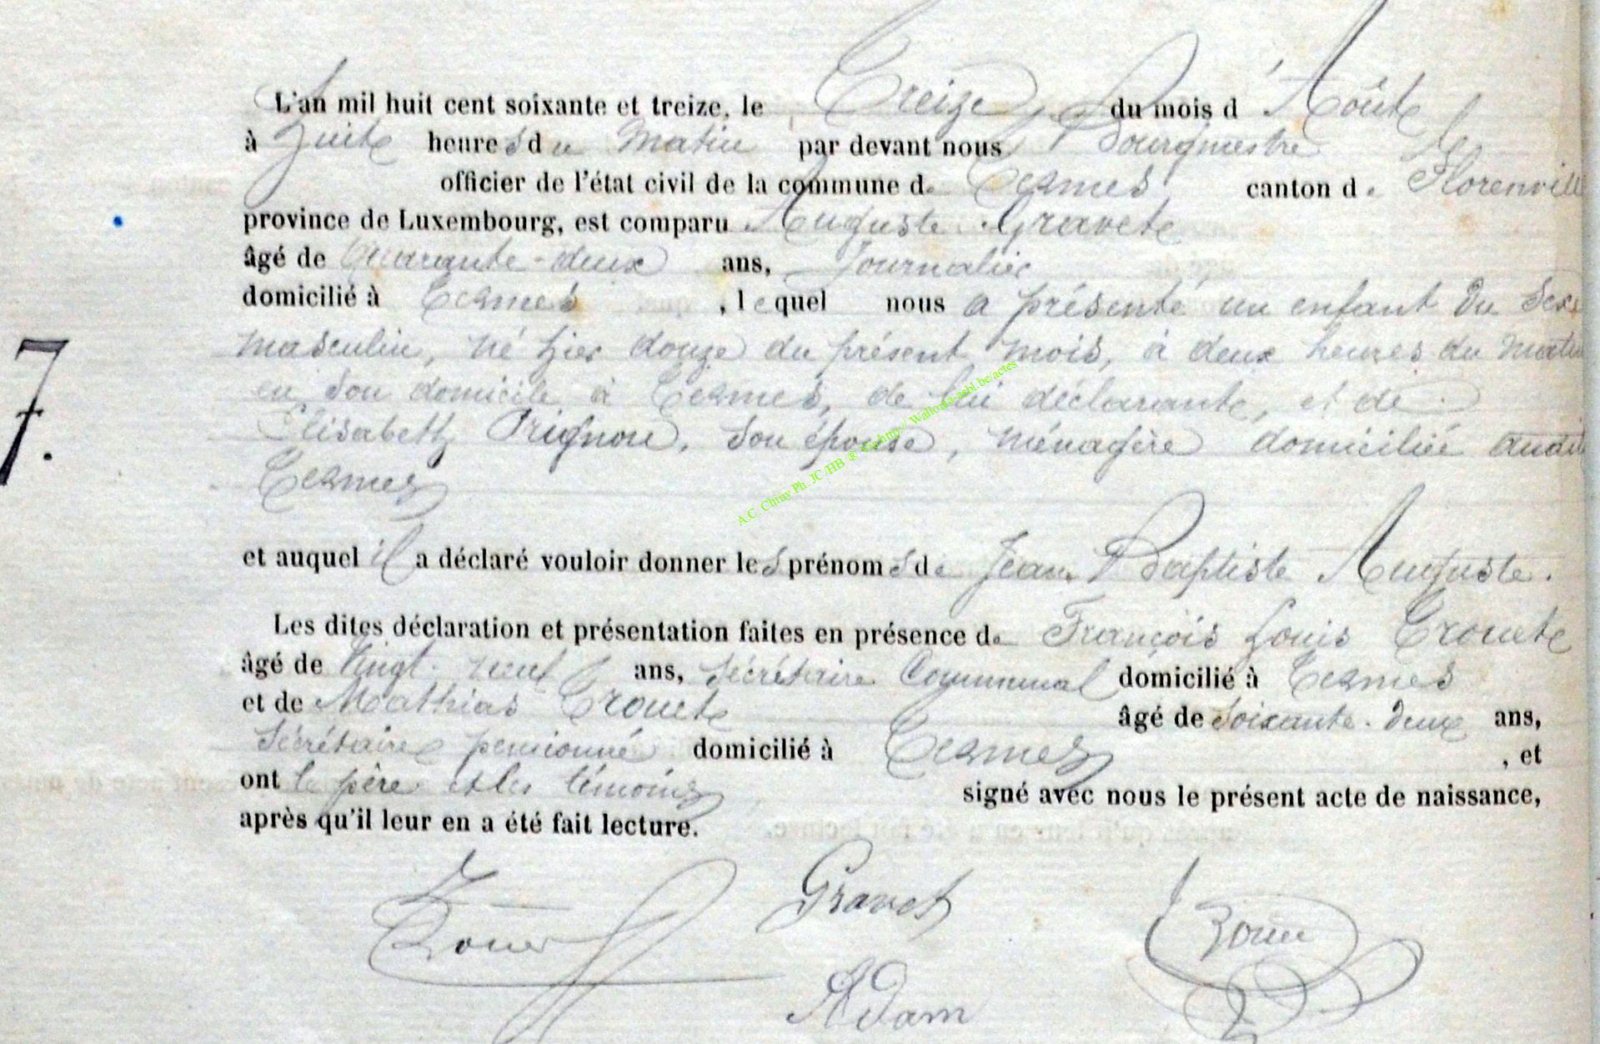 L'an mil huit cent soixante et treize, le Treize, du mois d'Août
à huit heures du matin par devant nous Bourgmestre
officier de l'état civil de la commune de Termes canton de Florenville
province de Luxembourg, est comparu Auguste Gravet
âgé de Quarante-deux ans, Journalier
domicilié à Termes, lequel nous a présenté un enfant du Sexe
masculin, né hier douze du présent mois, à deux heures du matin
en son domicile à Termes, de lui déclarant, et de
Elisabeth Prignon, son épouse, ménagère domiciliée audit
Termes
7.
et auquel il a déclaré vouloir donner les prénoms de Jean Baptiste Auguste.
Les dites déclaration et présentation faites en présence de François Louis
âgé de Vingt-neuf ans, Secrétaire Communal domicilié à Termes
et de Mathias âgé de Soixante-deux ans,
Secrétaire pensionné domicilié à Termes, et
ont le père et les témoins signé avec nous le présent acte de naissance,
après qu'il leur en a été fait lecture.
Gravet
Adam